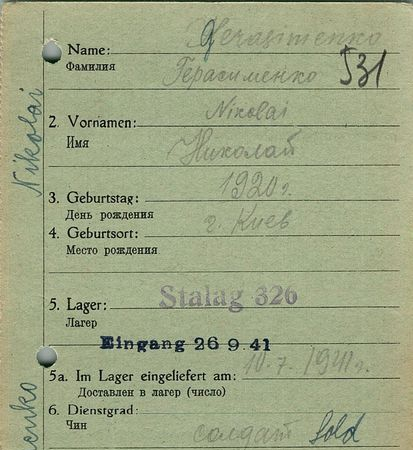 Name: Gerasimenko
Фамилия Герасименко 531
2. Vornamen: Nikolai
Имя Николай
3. Geburtstag: 1920 г.
День рождения
4. Geburtsort: г. Киев
Место рождения
5. Lager: Stalag 326
Лагерь
Eingang 26 9. 41
5a. Im Lager eingeliefert am: 10.7.1941 г.
Доставлен в лагерь (число)
6. Dienstgrad:
Чин солдат Sold
Nikolai
enko